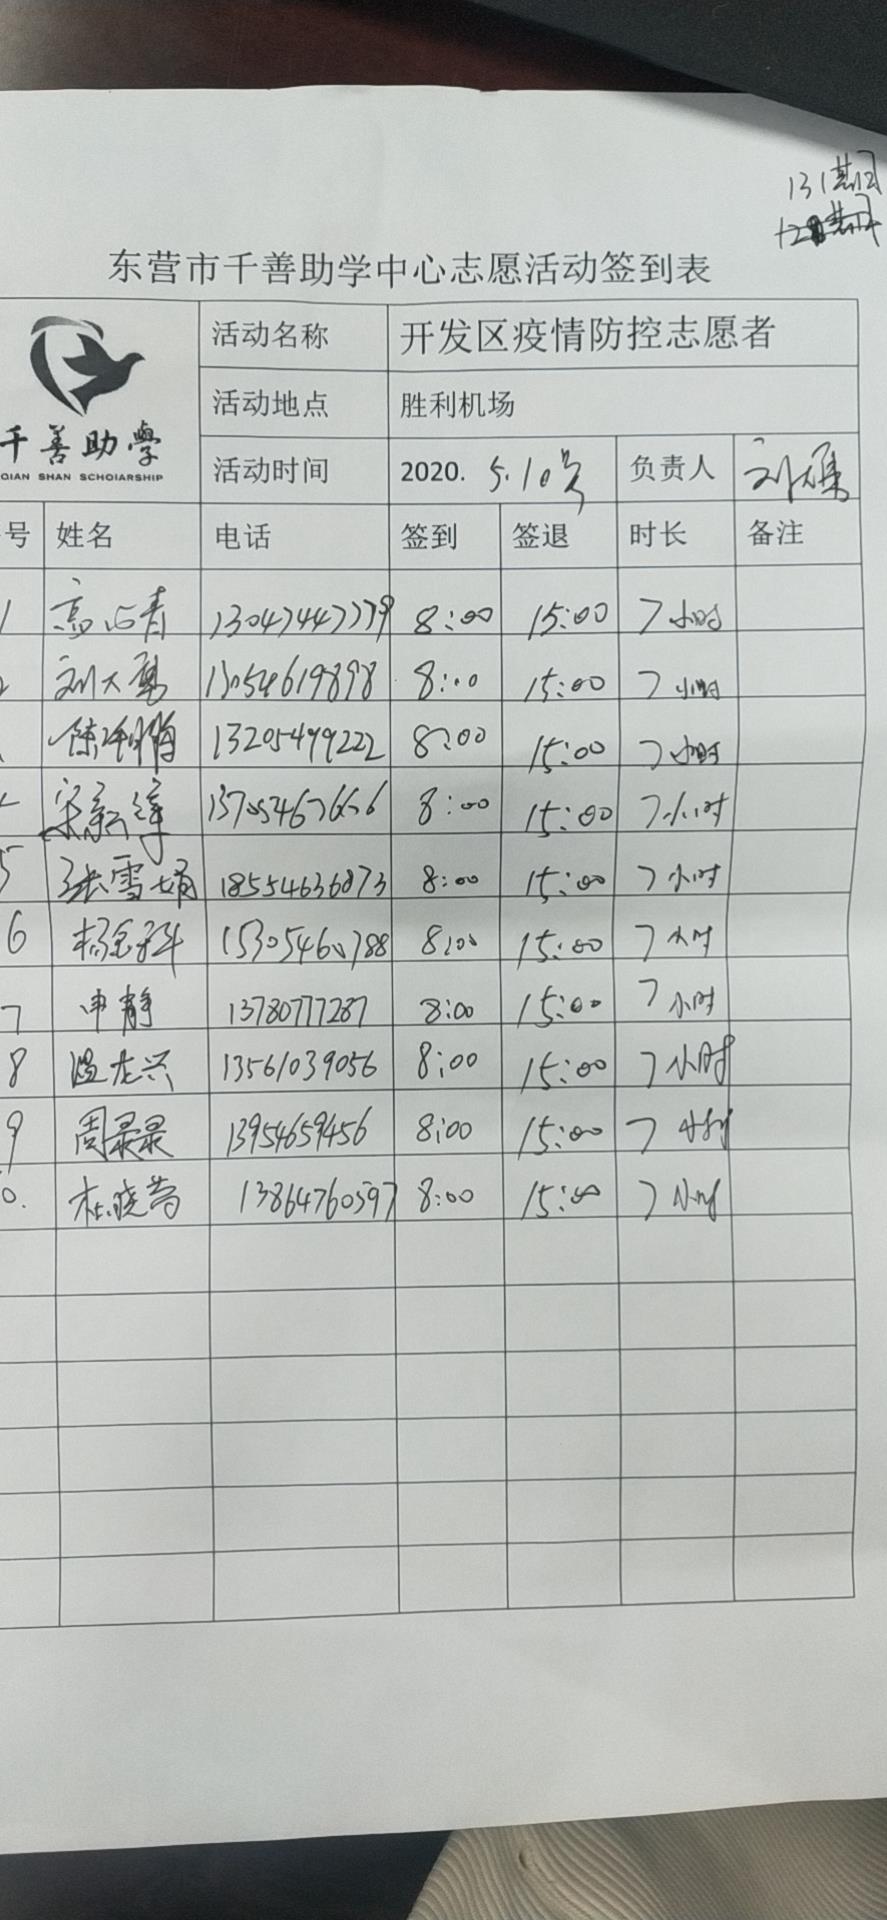 131期
东营市千善助学中心志愿活动签到表
千善助學
QIAN SHAN SCHOlARSHIP
活动名称 开发区疫情防控志愿者
活动地点 胜利机场
活动时间 2020. 5.10号 负责人 刘大勇
号 姓名 电话 签到 签退 时长 备注
1 高 青 8:00 15:00 7小时
刘大勇 13054619898 8:00 15:00 7小时
13205499222 8:00 15:00 7小时
宋 8:00 15:00 7小时
5 张雪娟 18554636873 8:00 15:00 7小时
6 杨 8:00 15:00 7小时
7 申静 13780777287 8:00 15:00 7小时
8 温龙兴 13561039056 8:00 15:00 7小时
9 周录录 13954659456 8:00 15:00 7小时
0. 杜晓 13864760597 8:00 15:00 7小时